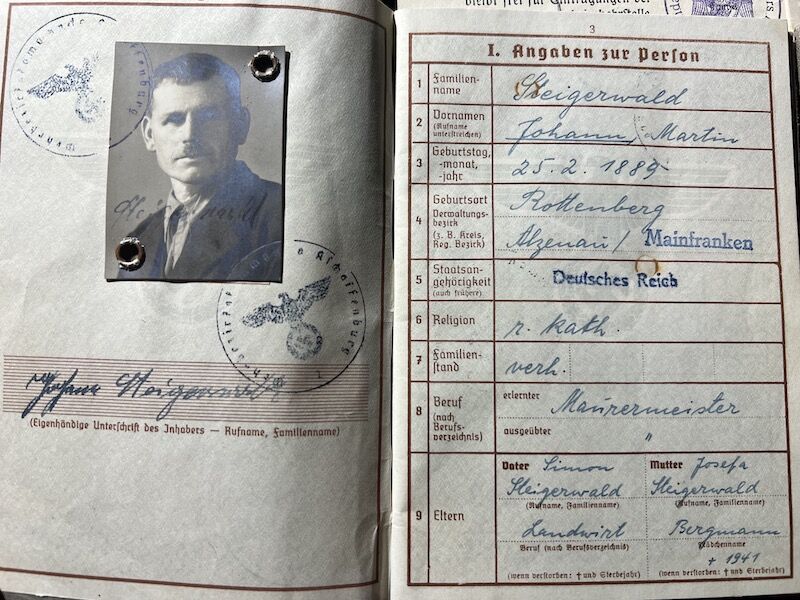 Wehrbezirkskommando Aschaffenburg
Johann Steigerwald
(Eigenhändige Unterschrift des Inhabers — Rufname, Familienname)
bleibt frei für Eintragungen der
3
I. Angaben zur Person
1 Familien-
name
Steigerwald
2 Vornamen
(Rufname
unterstreichen)
Johann, Martin
3 Geburtstag,
-monat,
-jahr
25. 2. 1889
4 Geburtsort
Verwaltungs-
bezirk
(z. B. Kreis,
Reg. Bezirk)
Rottenberg
Alzenau / Mainfranken
5 Staatsan-
gehörigkeit
(auch frühere)
Deutsches Reich
6 Religion
r. kath.
7 Familien-
stand
verh.
8 Beruf
(nach
Berufs-
verzeichnis)
erlernter
Maurermeister
ausgeübter
"
9 Eltern
Vater Simon
Steigerwald
(Rufname, Familienname)
Landwirt
Beruf (nach Berufsverzeichnis)
(wenn verstorben: † und Sterbejahr)
Mutter Josefa
Steigerwald
(Rufname, Familienname)
Bergmann
Mädchenname
+ 1941
(wenn verstorben: † und Sterbejahr)